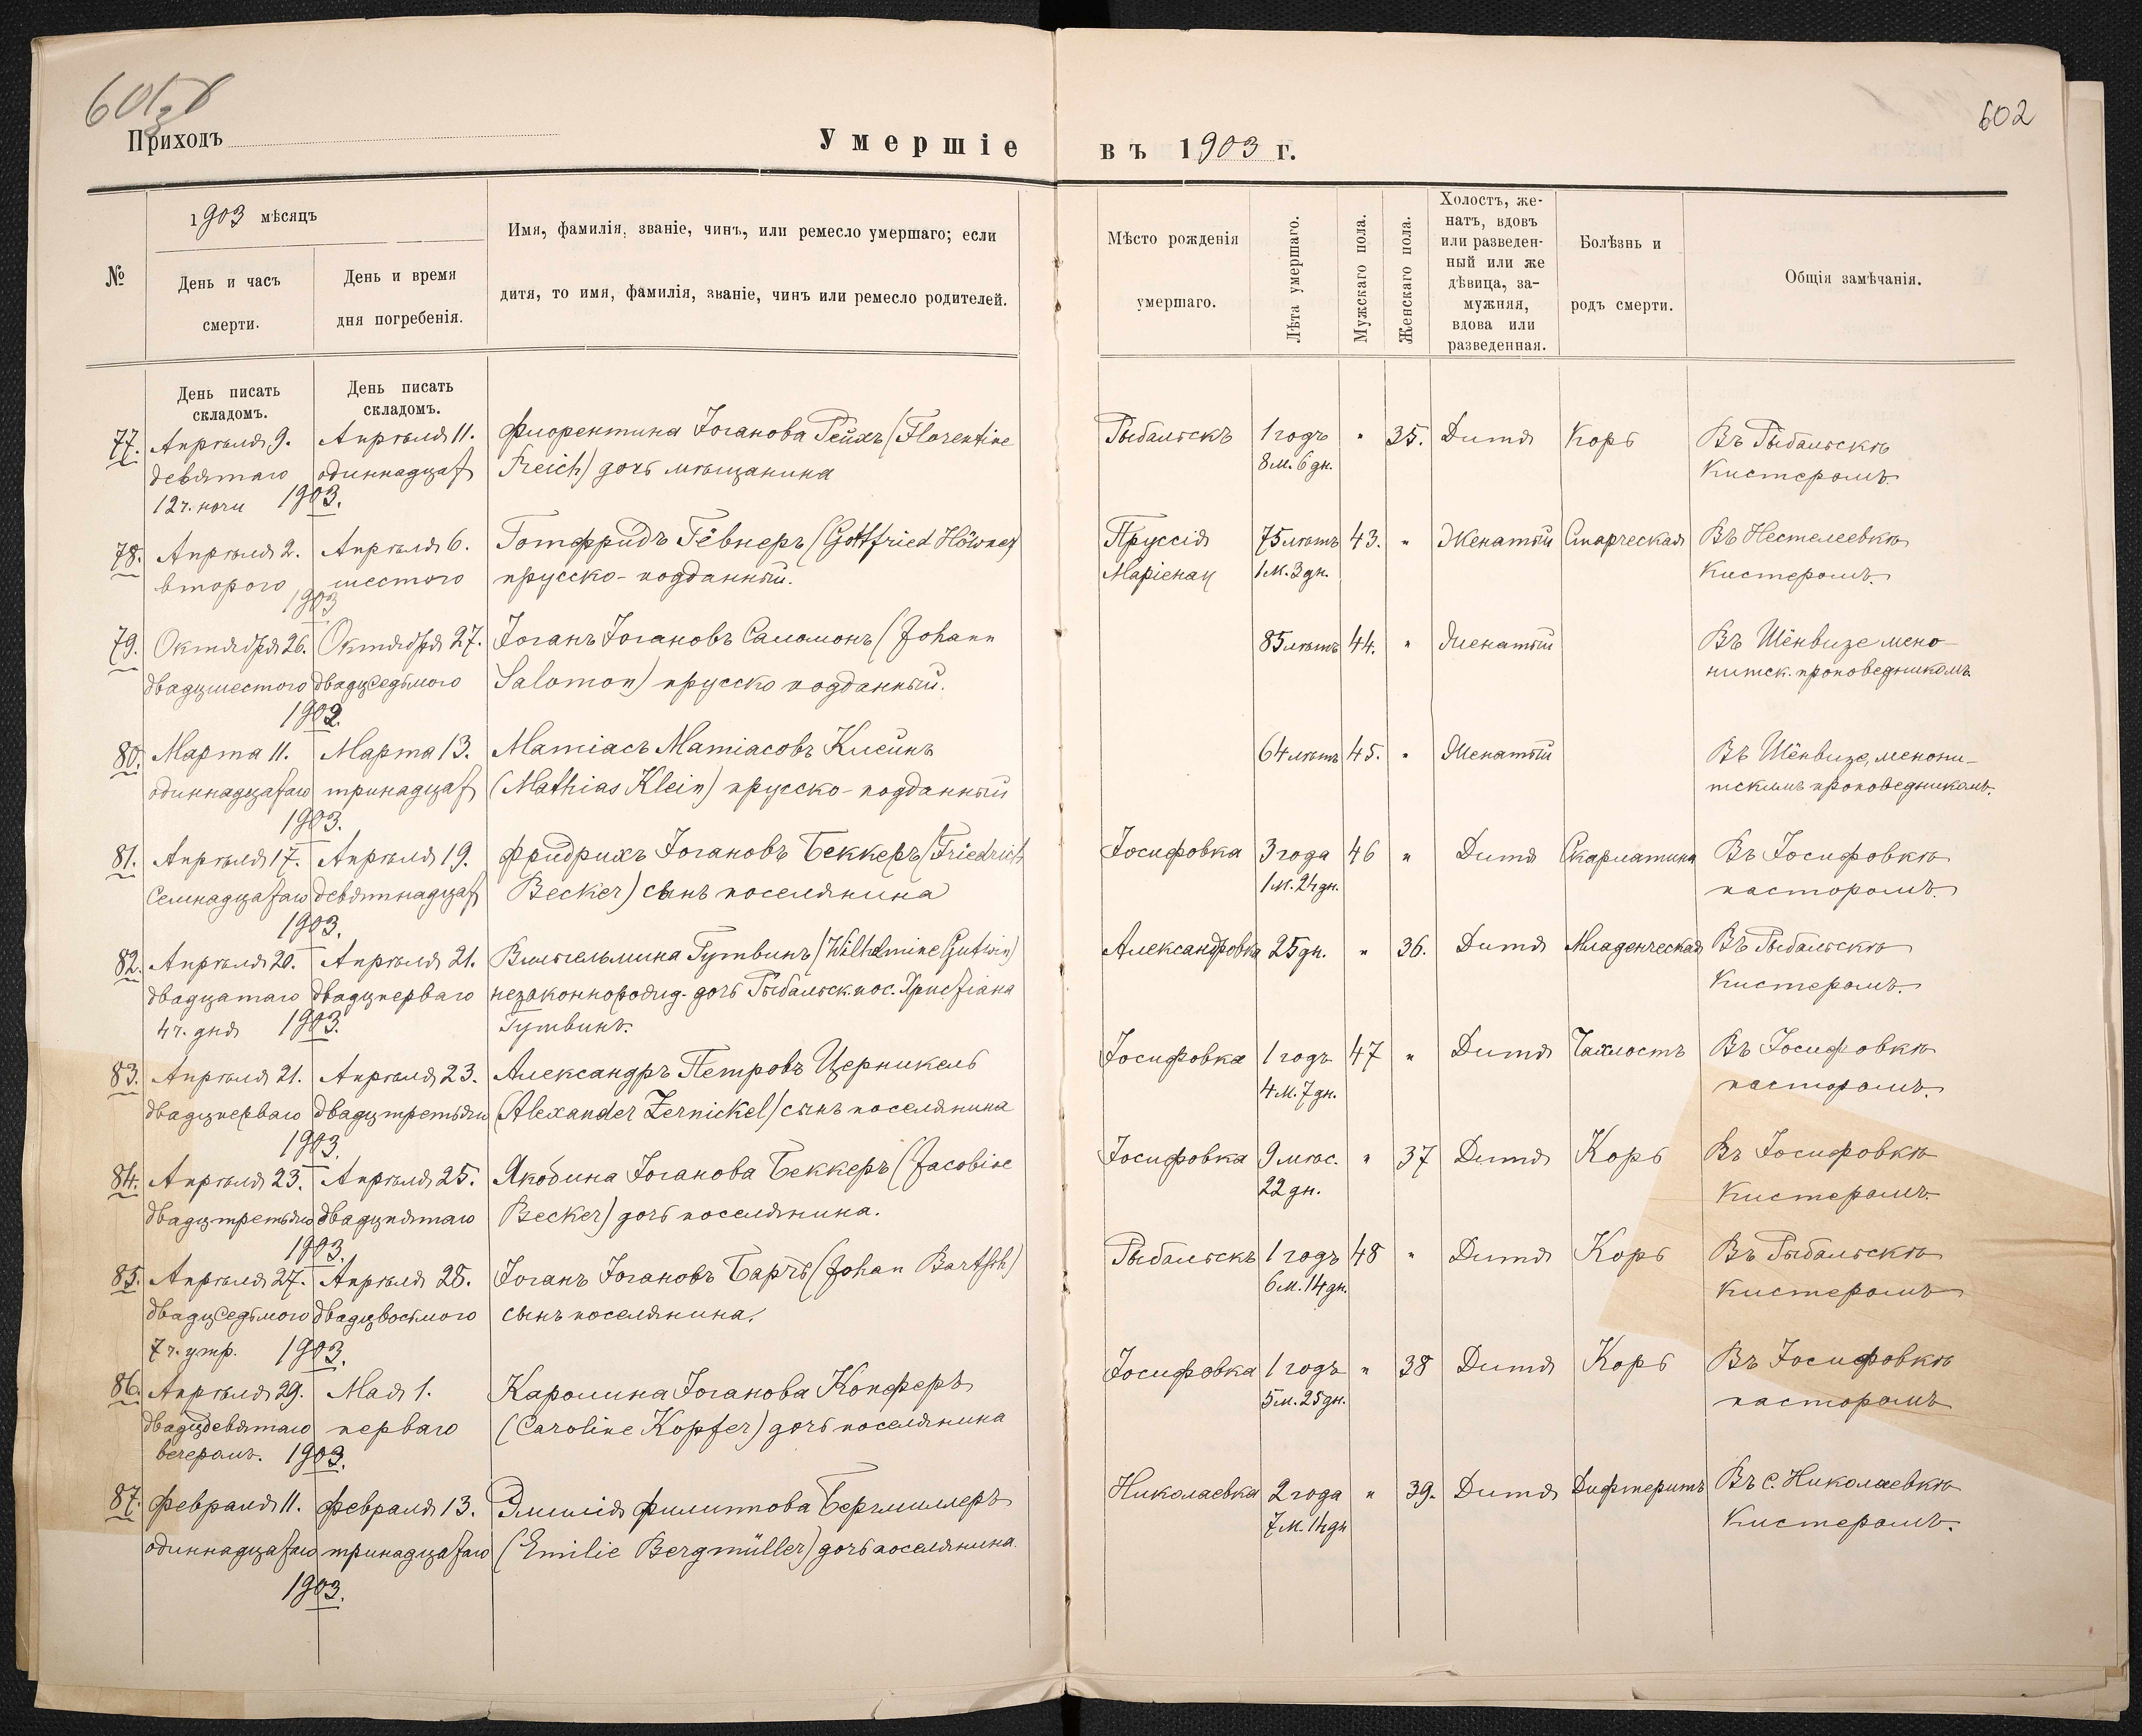 602
Приходъ
Умершіе
въ 1903 г.
№
1903 мѣсяцъ
День и часъ
смерти.
День и время
дня погребенія.
Имя, фамилія, званіе, чинъ, или ремесло умершаго; если
дитя, то имя, фамилія, званіе, чинъ или ремесло родителей.
Мѣсто рожденія
умершаго.
Лѣта умершаго.
Мужскаго пола.
Женскаго пола.
Холостъ, же-
натъ, вдовъ
или разведен-
ный или же
дѣвица, за-
мужняя,
вдова или
разведенная.
Болѣзнь и
родъ смерти.
Общія замѣчанія.
День писать
складомъ.
День писать
складомъ.
77. Апрѣля 9. Апрѣля 11. Флорентина Іоганова Рейхъ (Florentine Рыбальскъ 1 годъ " 35. Дитя Корь Въ Рыбальскѣ
девятаго одиннадцат Reich) дочь мѣщанина 8 м. 6 дн. Кистеромъ.
12 ч. ночи 1903.
78. Апрѣля 2. Апрѣля 6. Готфридъ Гёвнеръ (Gottfried Höwner) Пруссія 75 лѣтъ 43. " Женатый Старческая Въ Нестелеевкѣ
второго шестого прусско-подданный. Маріенау 1 м. 3 дн. Кистеромъ.
1903
79. Октября 26. Октября 27. Іоганъ Іогановъ Саломонъ (Johann 85 лѣтъ 44. " Женатый Въ Шёнвизе мено-
двадцшестого двадцседьмого Salomon) прусско подданный. нитск. проповедникомъ.
1902.
80. Марта 11. Марта 13. Матіасъ Матіасовъ Клейнъ 64 лѣтъ 45. " Женатый Въ Шёнвизе, менони-
одиннадцатаго тринадцат (Mathias Klein) прусско-подданный тскимъ проповедникомъ.
1903.
81. Апрѣля 17. Апрѣля 19. Фридрихъ Іогановъ Беккеръ (Friedrich Іосифовка 3 года 46 " Дитя Скарлатина Въ Іосифовкѣ
Семнадцатаго девятнадцат Becker) сынъ поселянина 1 м. 24 дн. пасторомъ.
1903.
82. Апрѣля 20. Апрѣля 21. Вильгельмина Гутвинъ (Wilhelmine Gutwin) Александровка 25 дн. " 36. Дитя Младенческая Въ Рыбальскѣ
двадцатаго двадцперваго незаконнорожд. дочь Рыбальск. пос. Христіана Кистеромъ.
4 ч. дня 1903. Гутвинъ.
83. Апрѣля 21. Апрѣля 23. Александръ Петровъ Церникель Іосифовка 1 годъ 47 " Дитя Чахлость Въ Іосифовкѣ
двадцперваго двадцтретьяго (Alexander Zernickel) сынъ поселянина 4 м. 7 дн. пасторомъ.
1903.
84. Апрѣля 23. Апрѣля 25. Якобина Іоганова Беккеръ (Jacobine Іосифовка 9 мѣс. " 37 Дитя Корь Въ Іосифовкѣ
двадцтретьяго двадцпятаго Becker) дочь поселянина. 22 дн. Кистеромъ.
1903.
85. Апрѣля 27. Апрѣля 28. Іоганъ Іогановъ Барчъ (Johan Bartsch) Рыбальскъ 1 годъ 48 " Дитя Корь Въ Рыбальскѣ
двадцседьмого двадцвосьмого сынъ поселянина. 6 м. 14 дн. Кистеромъ
7 ч. утр. 1903.
86. Апрѣля 29. Мая 1. Каролина Іоганова Копферъ Іосифовка 1 годъ " 38 Дитя Корь Въ Іосифовкѣ
двадцдевятаго перваго (Caroline Kopfer) дочь поселянина 5 м. 25 дн. пасторомъ
вечеромъ. 1903.
87. Февраля 11. Февраля 13. Эмилія Филиппова Бергмиллеръ Николаевка 2 года " 39. Дитя Дифтеритъ Въ с. Николаевкѣ
одиннадцатаго тринадцатаго (Emilie Bergmüller) дочь поселянина. 7 м. 14 дн Кистеромъ.
1903.